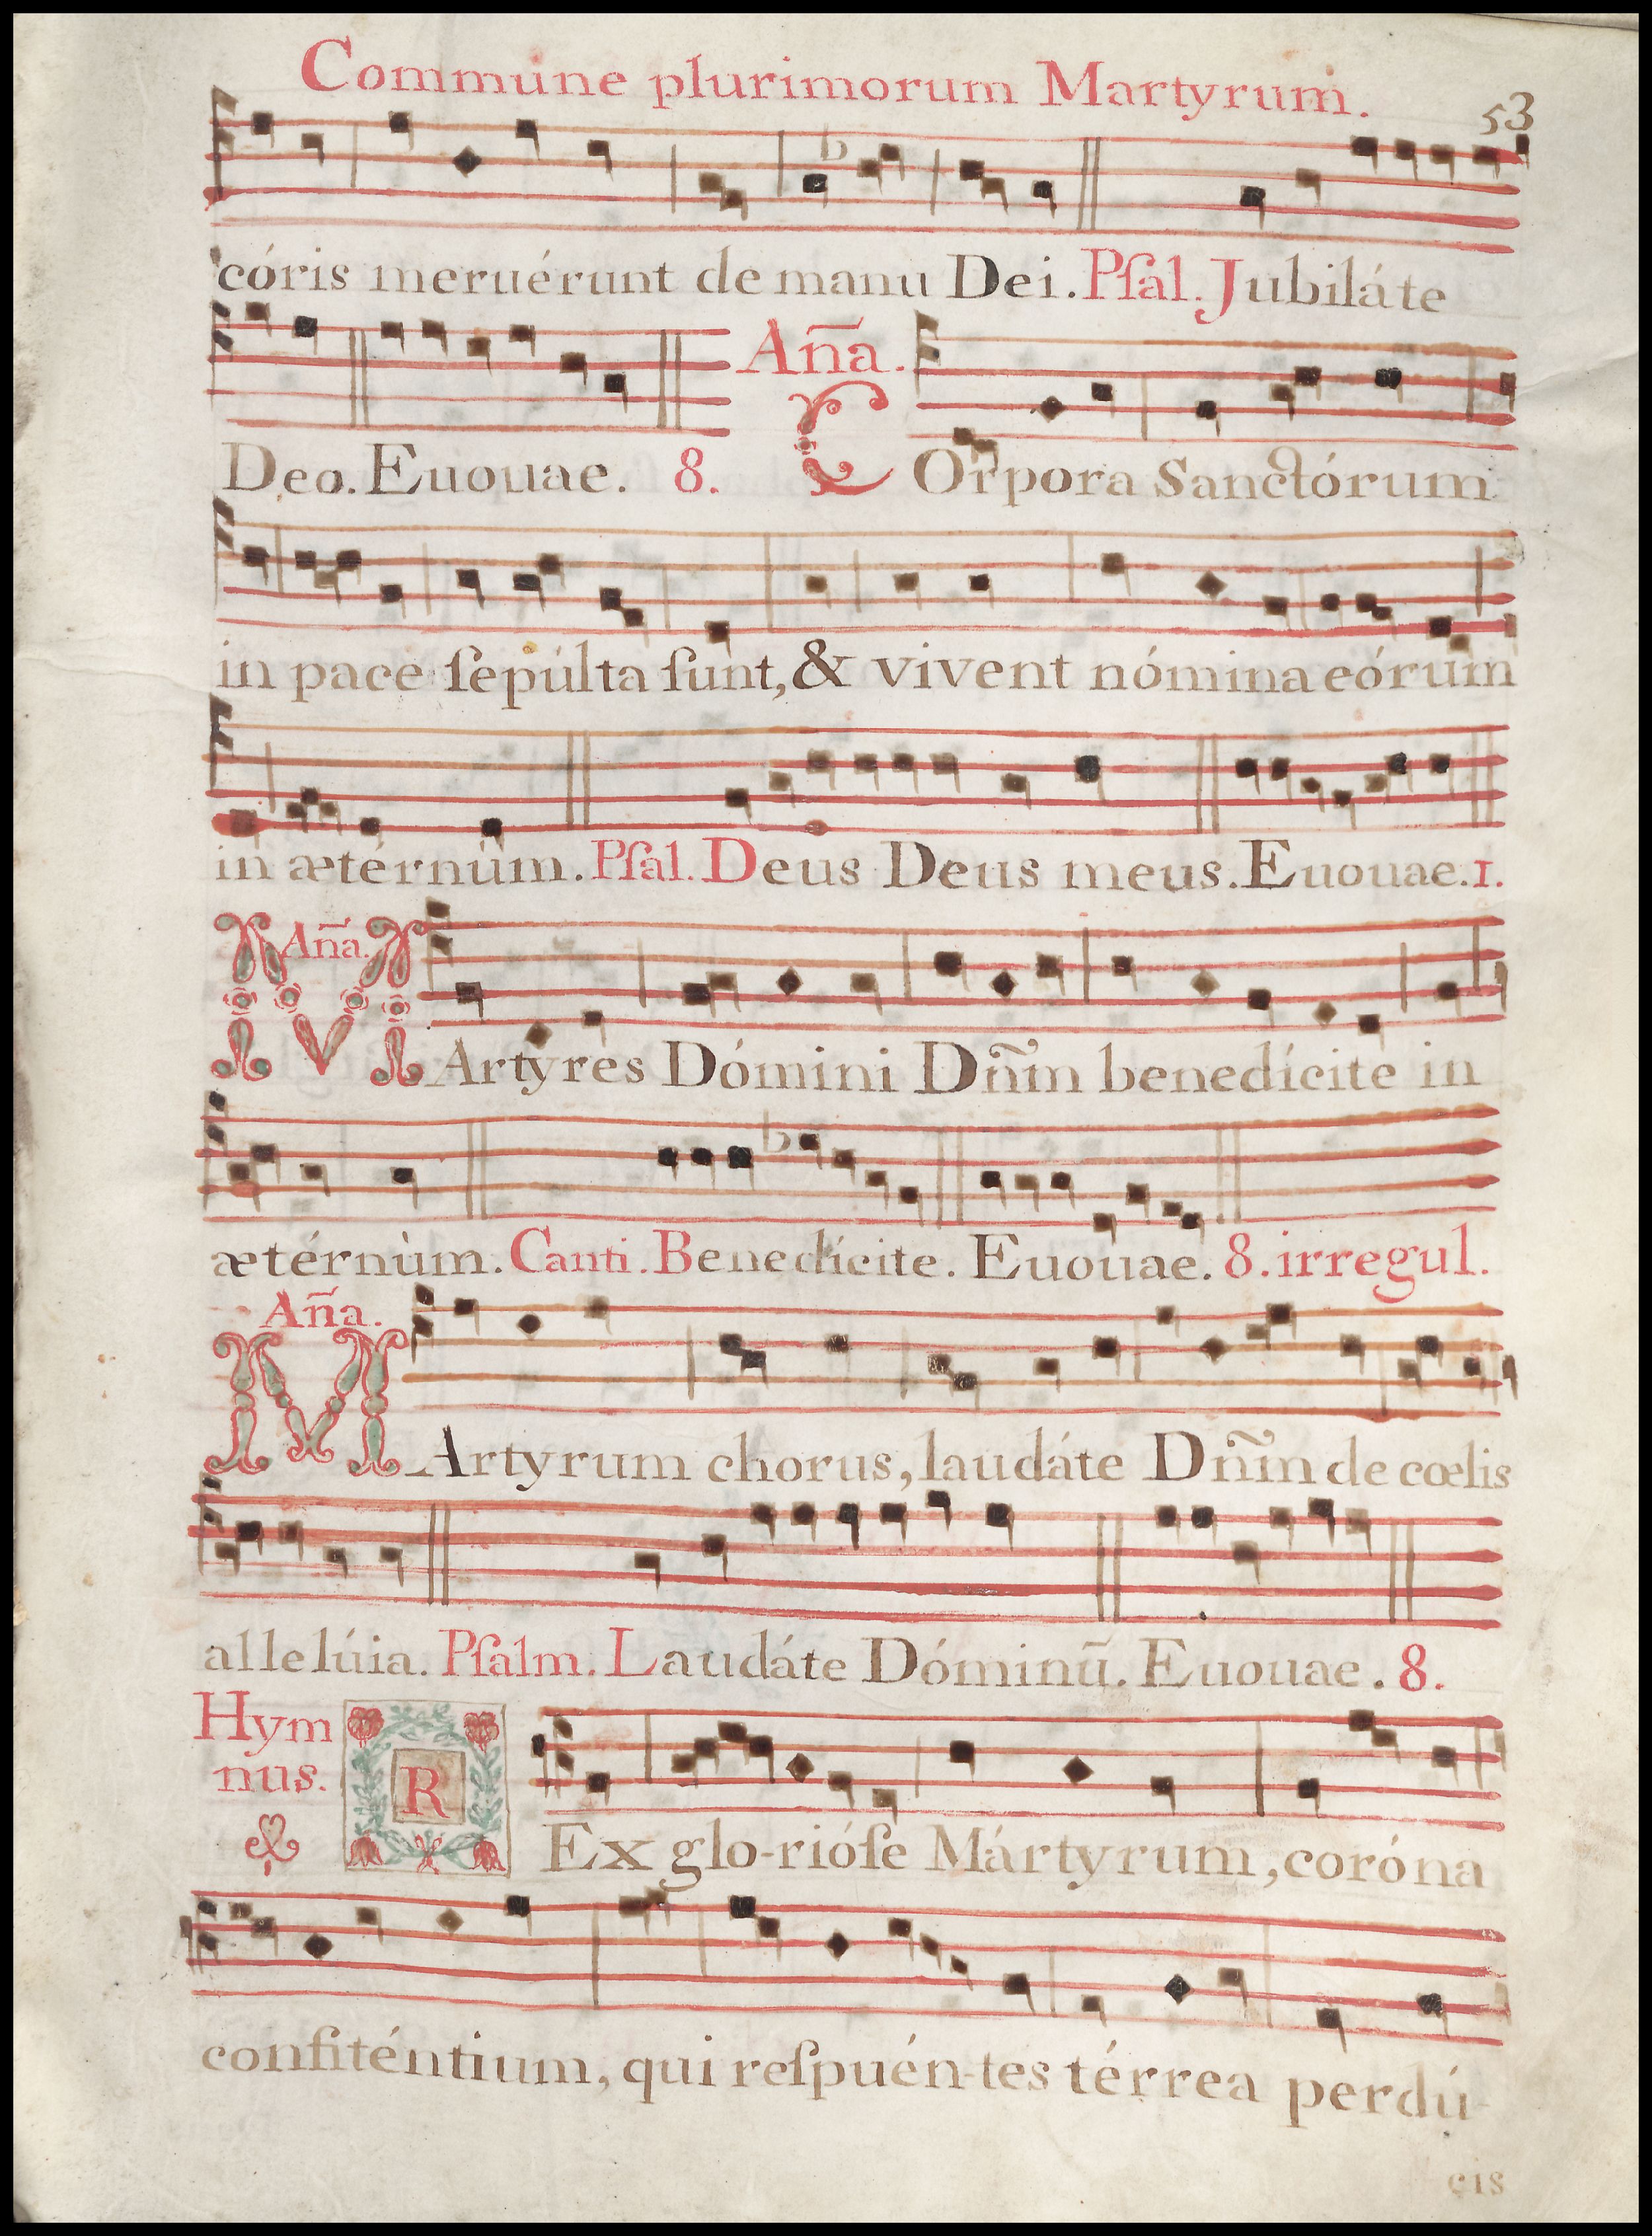 Commune plurimorum Martyrum.
53
córis meruérunt de manu Dei. Pſal. Jubiláte
Deo. Euouae. 8. Aña. COrpora Sanctórum
in pace ſepúlta ſunt, & vivent nómina eórum
in ætérnum. Pſal. Deus Deus meus. Euouae. 1.
Aña.
MArtyres Dómini Dñm benedícite in
ætérnum. Canti. Benedícite. Euouae. 8. irregul.
Aña.
MArtyrum chorus, laudáte Dñm de cœlis
allelúia. Pſalm. Laudáte Dóminũ. Euouae. 8.
Hym
nus.
REx glo-rióſe Mártyrum, coróna
confiténtium, qui reſpuén-tes térrea perdú-
cis